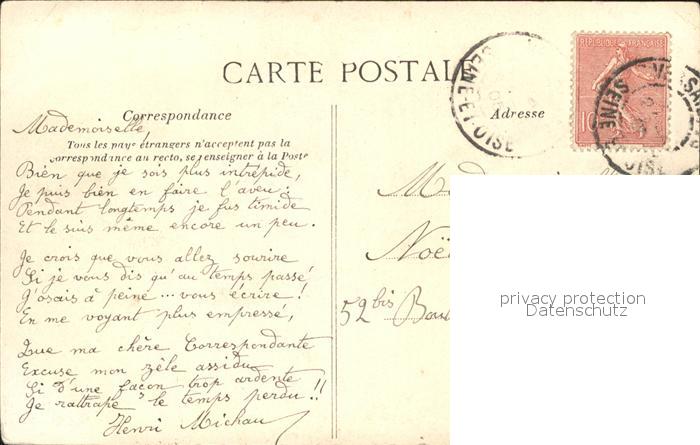 CARTE POSTALE
Correspondance
Adresse
Tous les pays étrangers n'acceptent pas la
correspondance au recto, se renseigner à la Poste
REPUBLIQUE FRANÇAISE
10
SEINE-ET-OISE
VERSA
SEINE OISE
Mademoiselle,
Bien que je sois plus intrépide,
Je puis bien en faire l'aveu:
Pendant longtemps je fus timide
Et le suis même encore un peu.
Je crois que vous allez sourire
Si je vous dis qu'au temps passé
J'osais à peine... vous écrire!
En me voyant plus empressé,
Que ma chère Correspondante
Excuse mon zèle assidu
Si d'une façon trop ardente
Je rattrape le temps perdu!!
Henri Michau
M
Noë
52bis Bou
privacy protection
Datenschutz